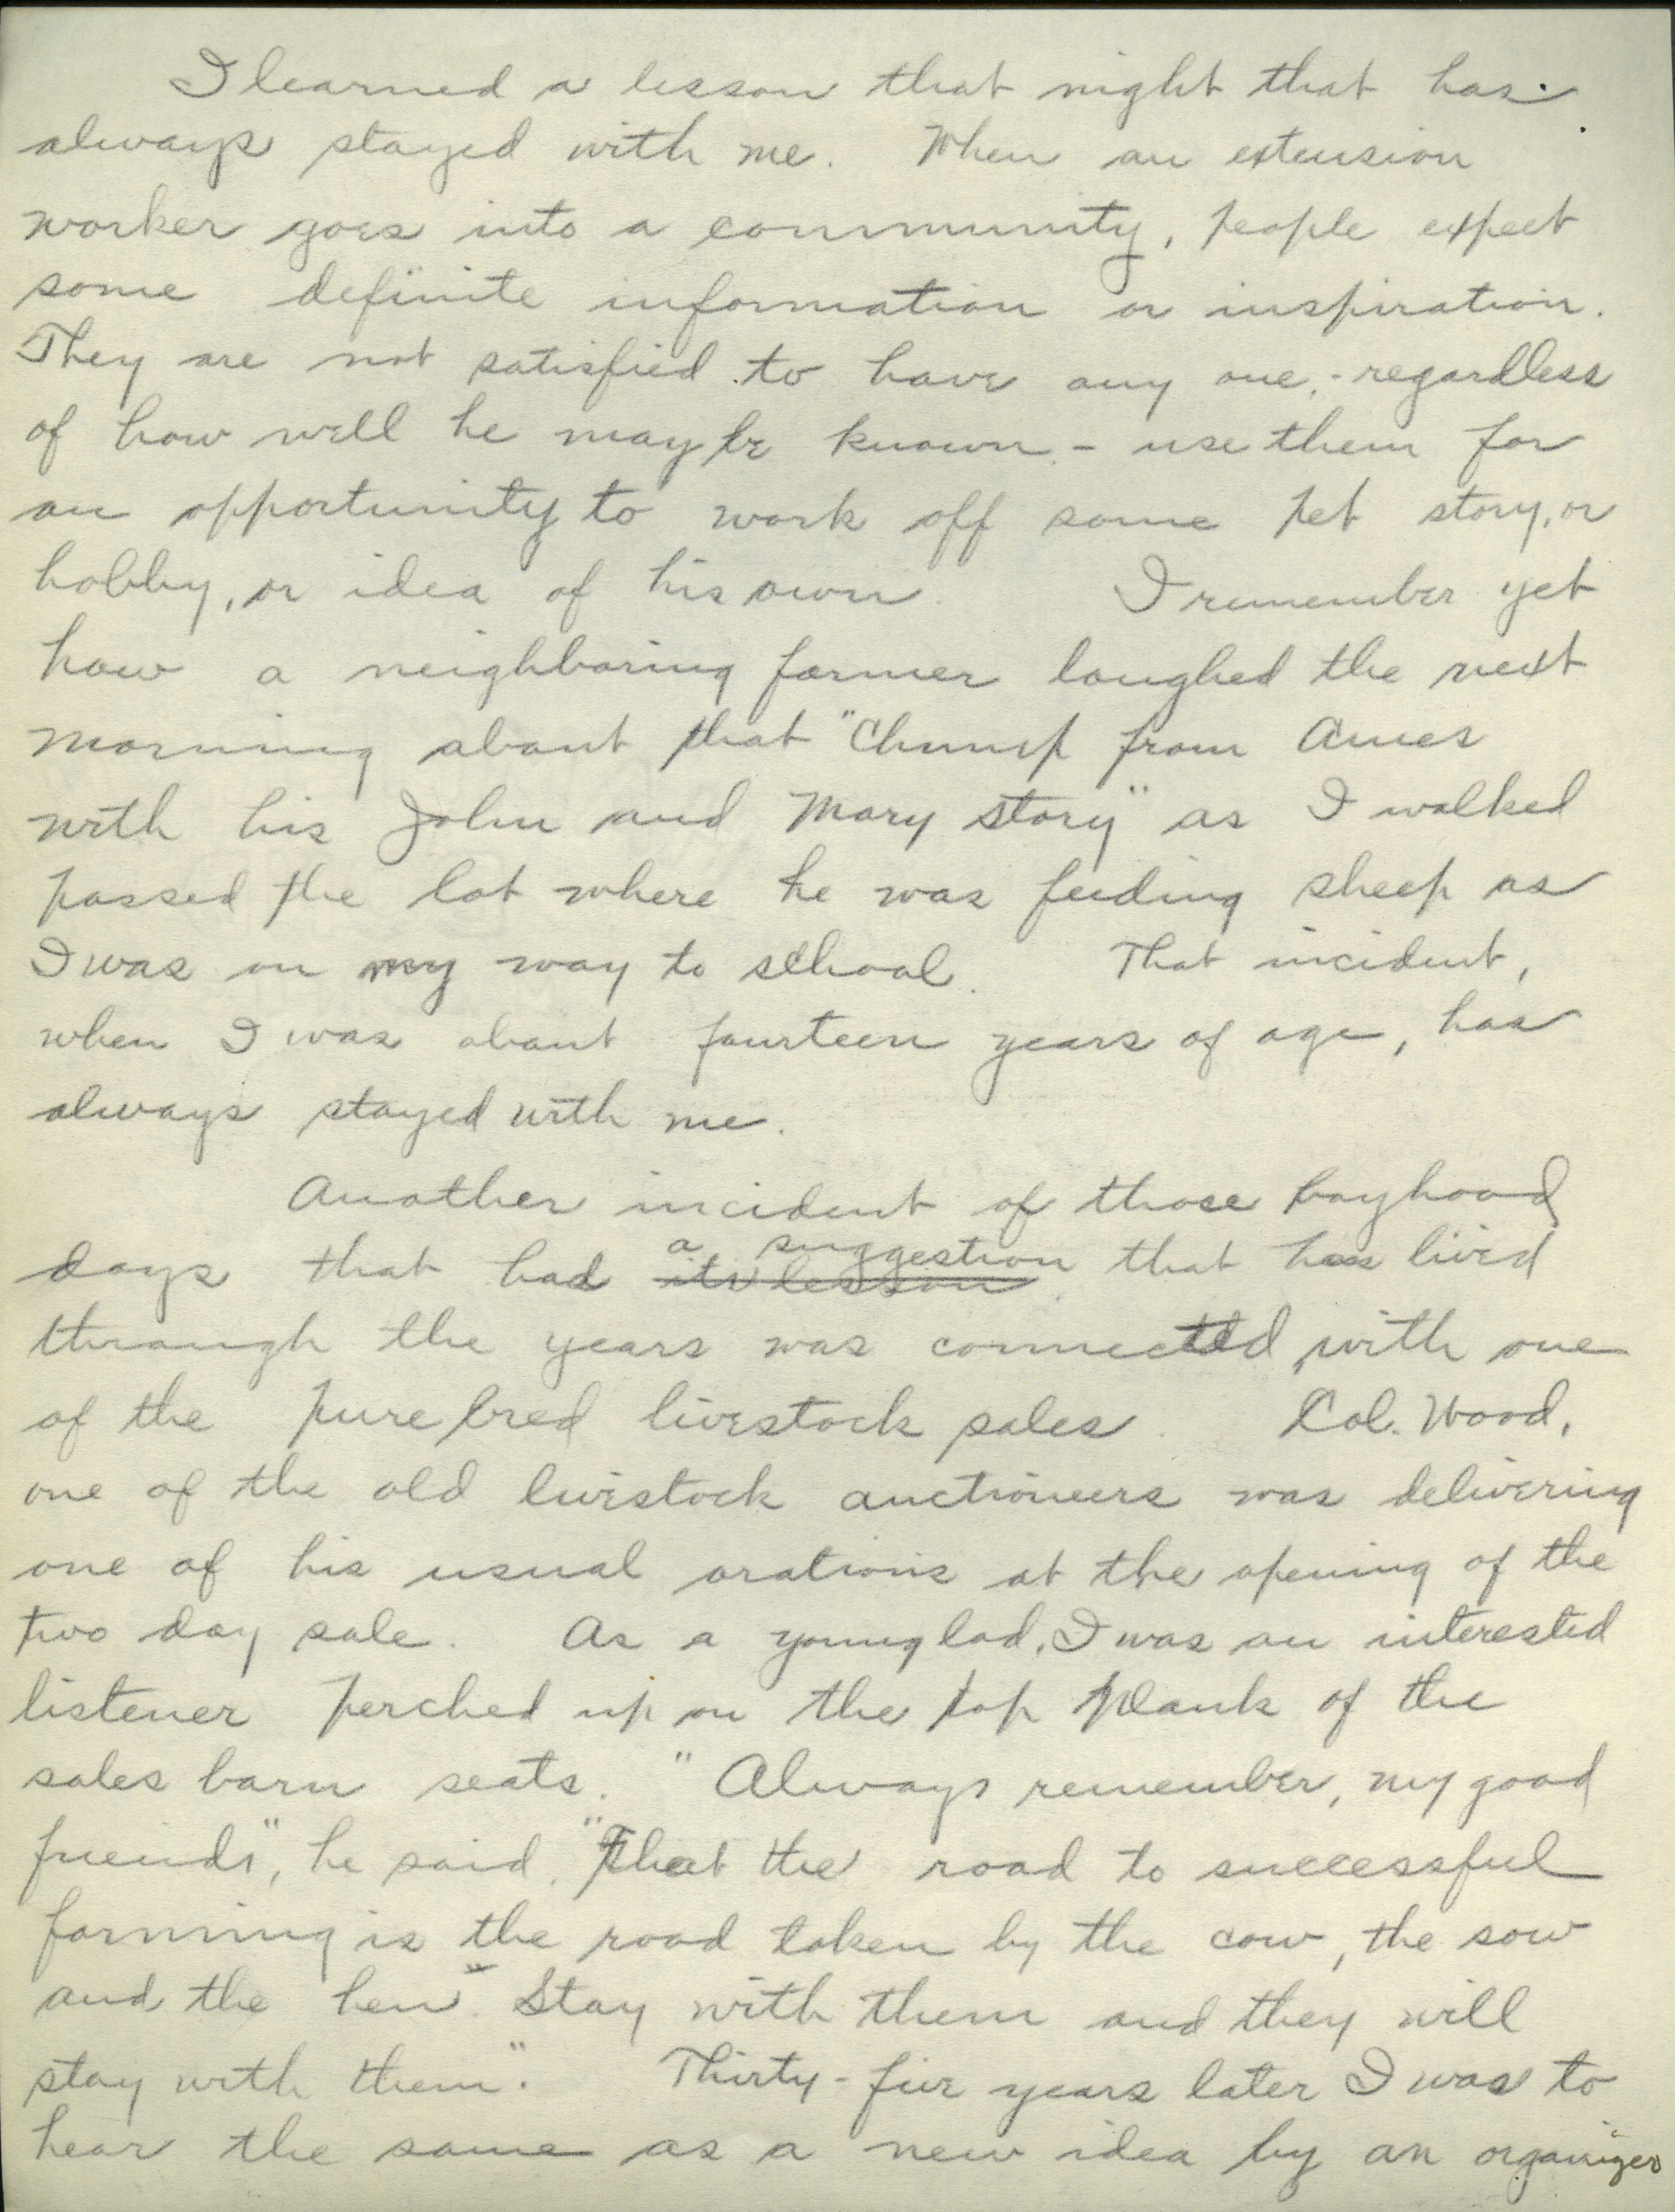 I learned a lesson that night that has
always stayed with me. When an extension
worker goes into a community, people expect
some definite information or inspiration.
They are not satisfied to have any one, - regardless
of how well he may be known - use them for
an opportunity to work off some pet story, or
hobby, or idea of his own. I remember yet
how a neighboring farmer laughed the next
morning about that "Chump from Ames
with his John and Mary story" as I walked
passed the lot where he was feeding sheep as
I was on my way to school. That incident,
when I was about fourteen years of age, has
always stayed with me.
Another incident of those boyhood
days that had its lesson a suggestion that has lived
through the years was connected with one
of the pure bred livestock sales. Col. Wood,
one of the old livestock auctioneers was delivering
one of his usual orations at the opening of the
two day sale. As a young lad, I was an interested
listener perched up on the top plank of the
sales barn seats. "Always remember, my good
friends", he said, "That the road to successful
farming is the road taken by the cow, the sow
and the hen. Stay with them and they will
stay with them". Thirty-five years later I was to
hear the same as a new idea by an organizer